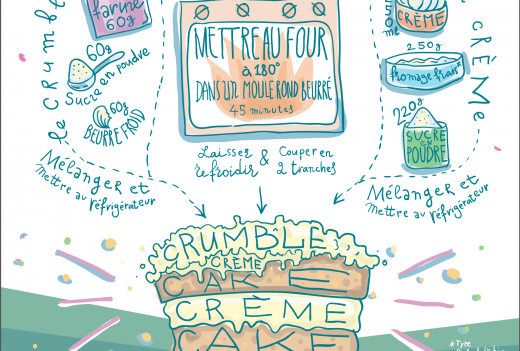 farine
60g
60g
Sucre en poudre
60g
BEURRE FROID
Le CRUMB
Mélanger et
Mettre au réfrigérateur
METTRE AU FOUR
à 180°
DANS UN MOULE ROND BEURRÉ
45 minutes
Laisser
refroidir
&
Couper en
2 tranches
CRÈME
250g
fromage frais*
220g
SUCRE
EN
POUDRE
CRÈME
Mélanger et
Mettre au réfrigérateur
CRUMBLE
CRÈME
CAKE
CRÈME
CAKE
*Type